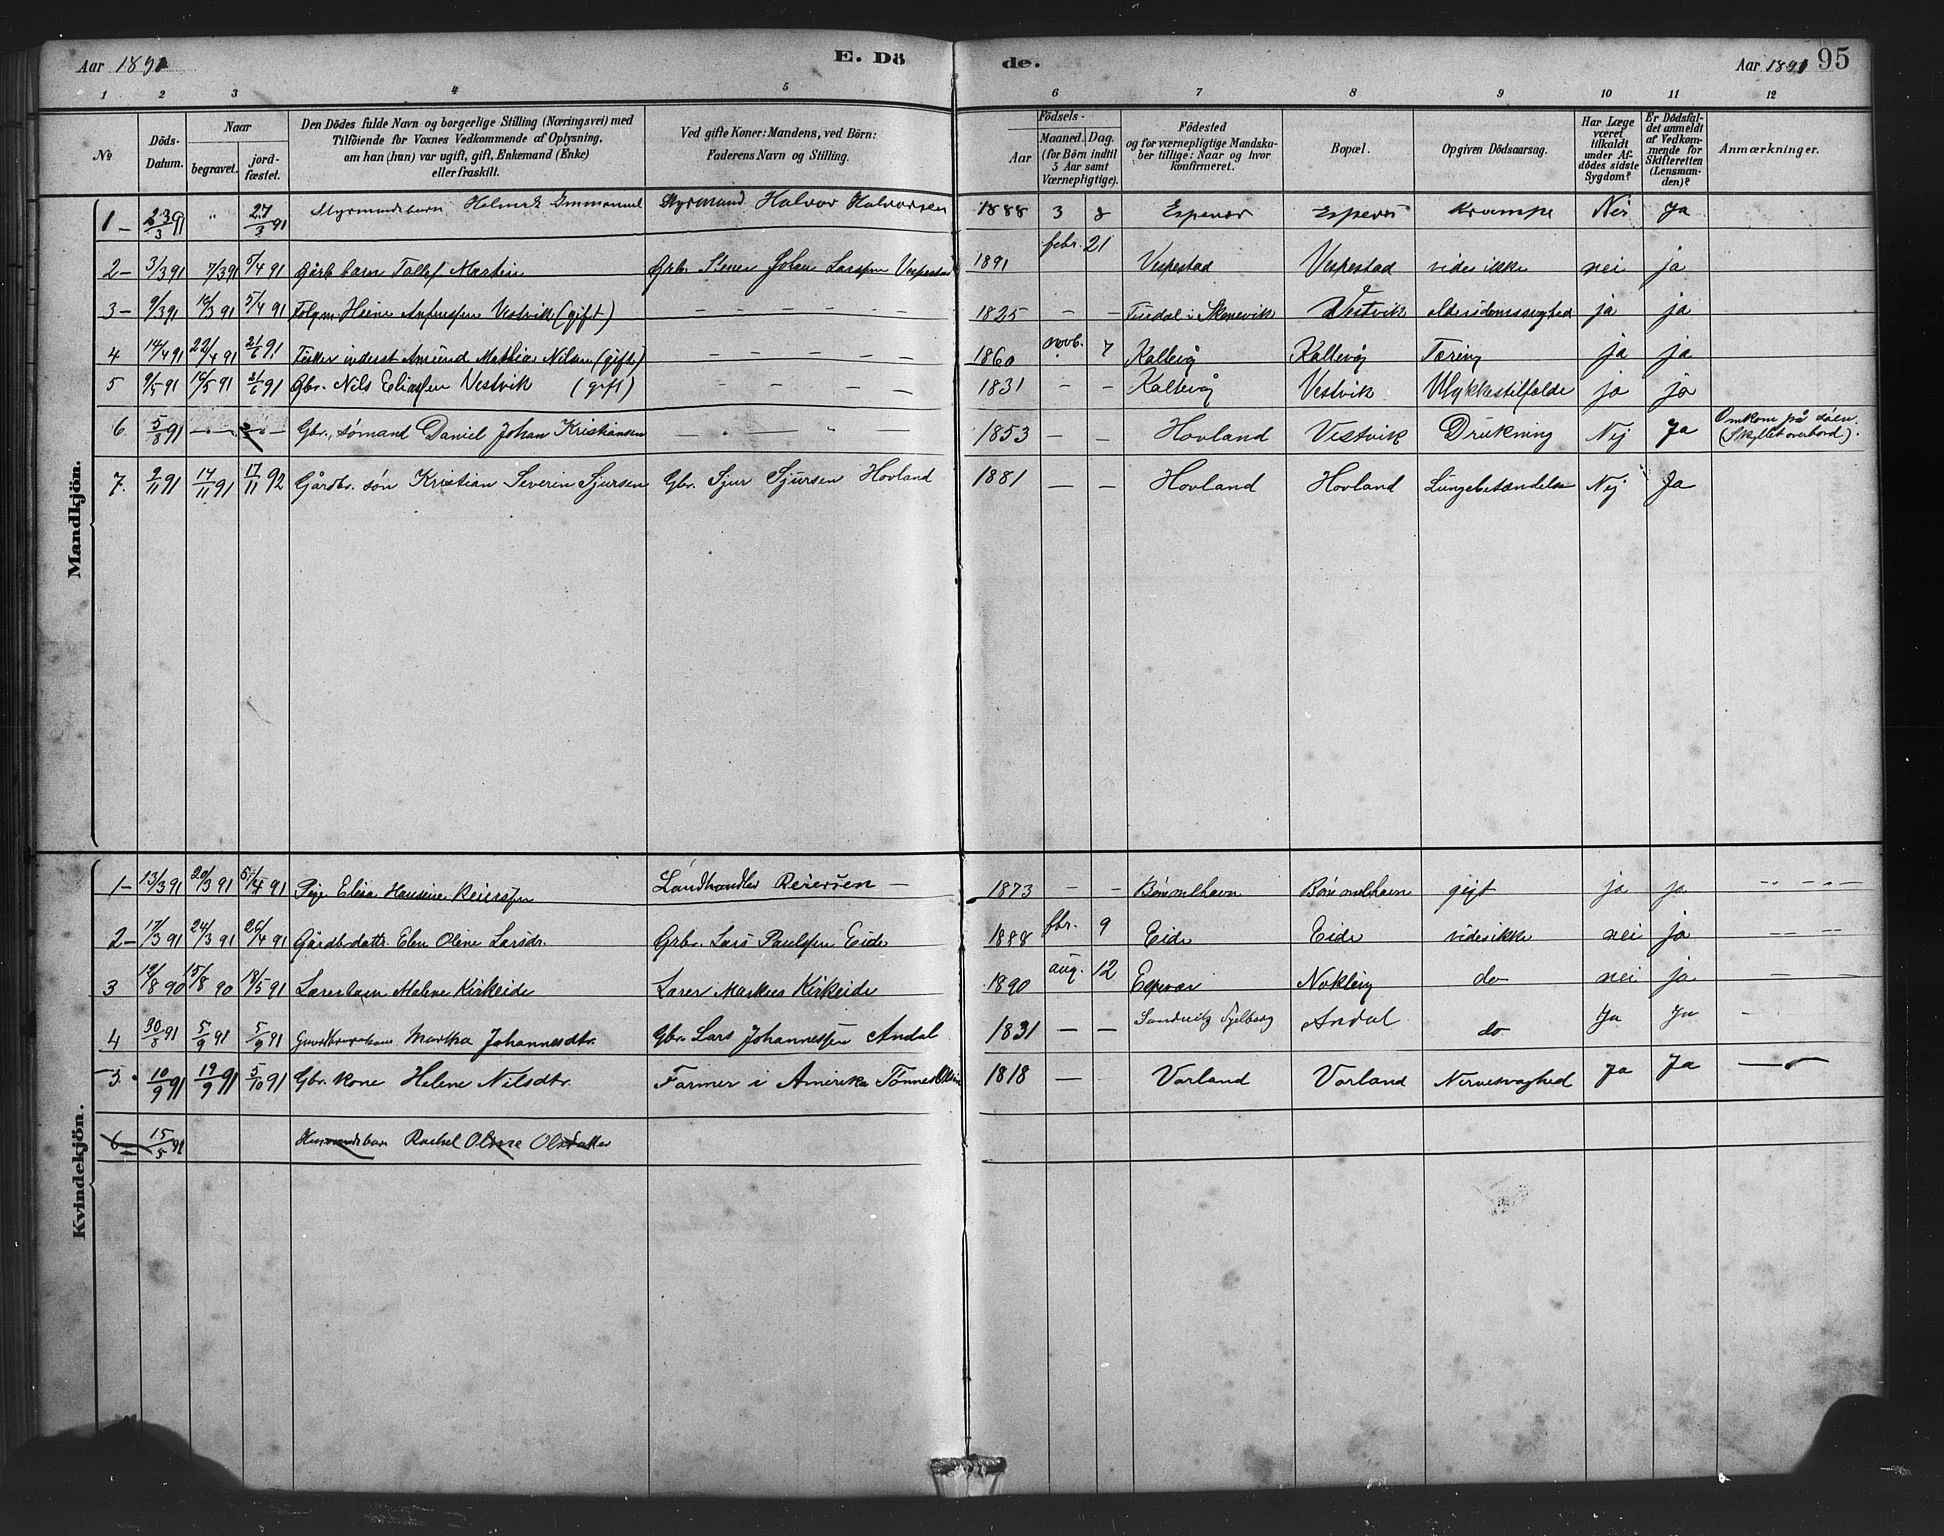 Aar 1891 E. Dö de. Aar 1891 95
1 2 3 4 5 6 7 8 9 10 11 12
No Döds-Datum. Naar begravet. jord-fæstet. Den Dödes fulde Navn og borgerlige Stilling (Næringsvei) med Tilföiende for Voxnes Vedkommende af Oplysning, om han (hun) var ugift, gift, Enkemand (Enke) eller fraskilt. Ved gifte Koner: Mandens, ved Börn: Faderens Navn og Stilling. Aar Födsels- Maaned. Dag. (for Börn indtil 5 Aar samt Værnepligtige). Födested og for værnepligtige Mandska-ber tillige: Naar og hvor konfirmeret. Bopæl. Opgiven Dödsaarsag. Har Læge været tilkaldt under Af-dödes sidste Sygdom? Er Dödsfal-det anmeldt af Vedkom-mende for Skifteretten (Lensman-den)? Anmærkninger.
Mandkjön.
1 - 23/3 91 " 27/3 91 Styrmandsbarn Halvor Emmanuel Styrmand Halvor Halvorsen 1888 3 8 Espevær Espevær Krampe Nei Ja
2 - 3/3 91 7/3 91 5/4 91 Gårdb. barn Tollef Martin Grbr. Stener Johan Larssen Vespestad 1891 febr. 21 Vespestad Vespestad vides ikke nei ja
3 - 9/3 91 16/3 91 5/4 91 Folgm. Heine Anfinssen Vestvik (gift) - - - - - 1825 - - Tindal i Skonevik Vestvik alderdomssvaghed ja ja
4 14/4 91 22/4 91 21/6 91 Fisker inderst Amund Mathias Nilsen (gift) - - - - - 1860 novb. 7 Kallevåg Kallevåg Tæring ja ja
5 9/5 91 16/5 91 21/6 91 Gbr. Nils Eliassen Vestvik (gift) - - - - - 1831 - - Kallevåg Vestvik Ulykkestilfælde ja ja
6. 5/8 91 - - - - Gbr., sømand Daniel Johan Kristiansen - - " - 1853 - - Hovland Vestvik Drukning Nej Ja Omkom på søen. (Skyllet overbord).
7. 2/11 91 17/11 91 17/11 92 Gårdbr. søn Kristian Severin Sjursen Gbr. Sjur Sjursen Hovland 1881 - - Hovland Hovland Lungebetændelse Nej Ja
Kvindekjön.
1 - 13/3 91 20/3 91 5/4 91 Pige Elisa Hansine Reiersen Landhandler Reiersen - 1873 - - Bømmelhavn Bømmelhavn gigt ja ja - - - -
2 - 17/3 91 24/3 91 26/4 91 Gårdbrdattr. Elen Oline Larsdr. Grbr. Lars Paulssen Eide 1888 fbr. 9 Eide Eide vides ikke nei ja - - -
3 14/8 90 15/8 90 18/5 91 Lærerbarn Malene Kirkeide Lærer Markus Kirkeide 1890 aug. 12 Espevær Nøkling do nei ja - -
4 30/8 91 5/9 91 5/9 91 Martha Johannesdtr. Gbr. Lars Johannessen Andal 1831 - - Sandvik Fjelberg Andal do Ja Ja -
5. 10/9 91 19/9 91 5/10 91 Gbr. kone Helene Nilsdtr. Farmer i Amerika Tønnes Olsen 1818 - Vorland Vorland Nervesvaghed Ja Ja -
6 15/5 91 Husmandsbarn Rachel Oline Olsdatter